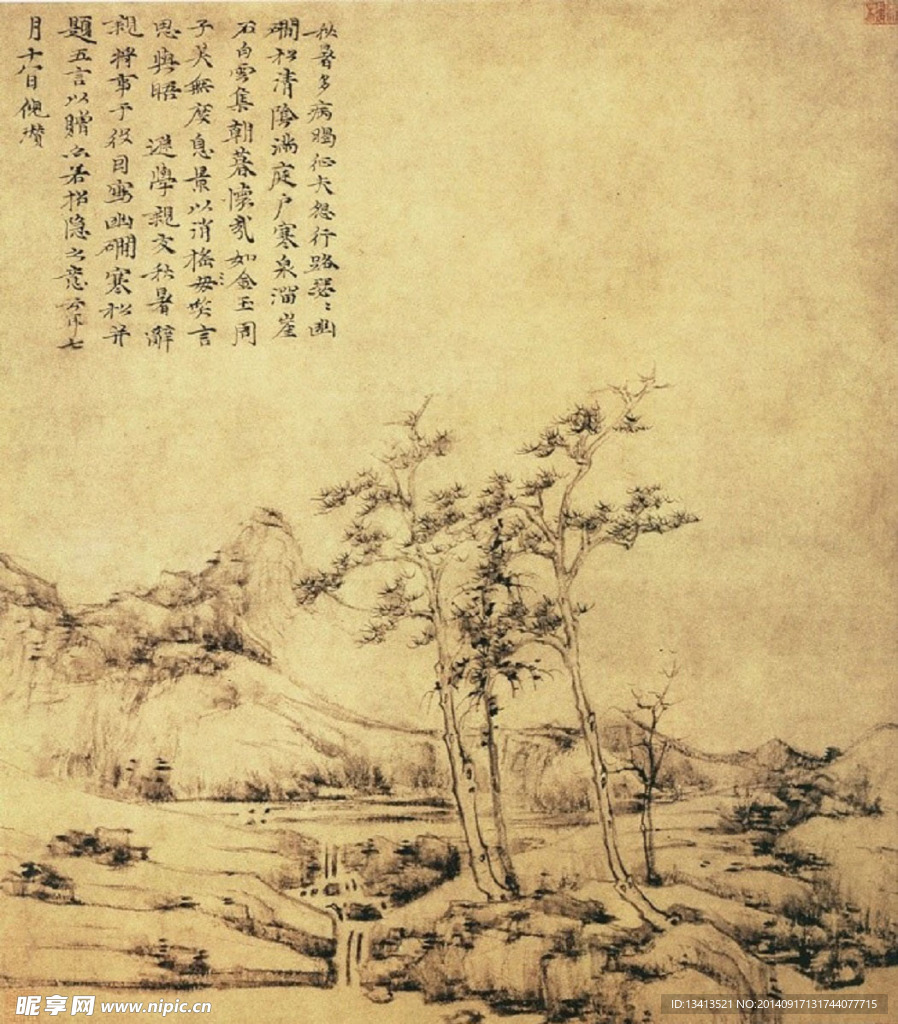 秋暑多病暍征夫怨行路瑟〻幽
磵松清陰滿庭户寒泉溜崖
石白雲集朝暮懷哉如金玉周
子美無度息景以消摇毋〻咲言
思與晤　遜學親友秋暑辭
親將事于役因寫幽磵寒松并
題五言以贈亦若招隱之意云耳七
月十八日倪瓚
昵享网 www.nipic.cn
ID:13413521 NO:20140917131744077715